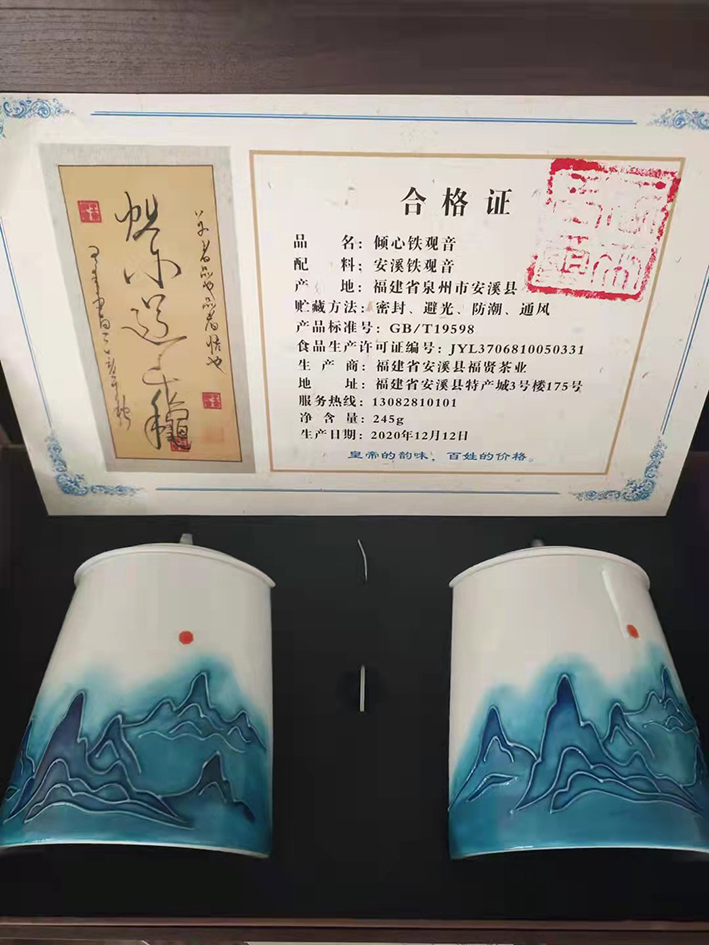 合格证
品 名：倾心铁观音
配 料：安溪铁观音
产 地：福建省泉州市安溪县
贮藏方法：密封、避光、防潮、通风
产品标准号：GB/T19598
食品生产许可证编号：JYL3706810050331
生 产 商：福建省安溪县福贤茶业
地 址：福建省安溪县特产城3号楼175号
服务热线：13082810101
净 含 量：245g
生产日期：2020年12月12日
皇帝的韵味，百姓的价格。